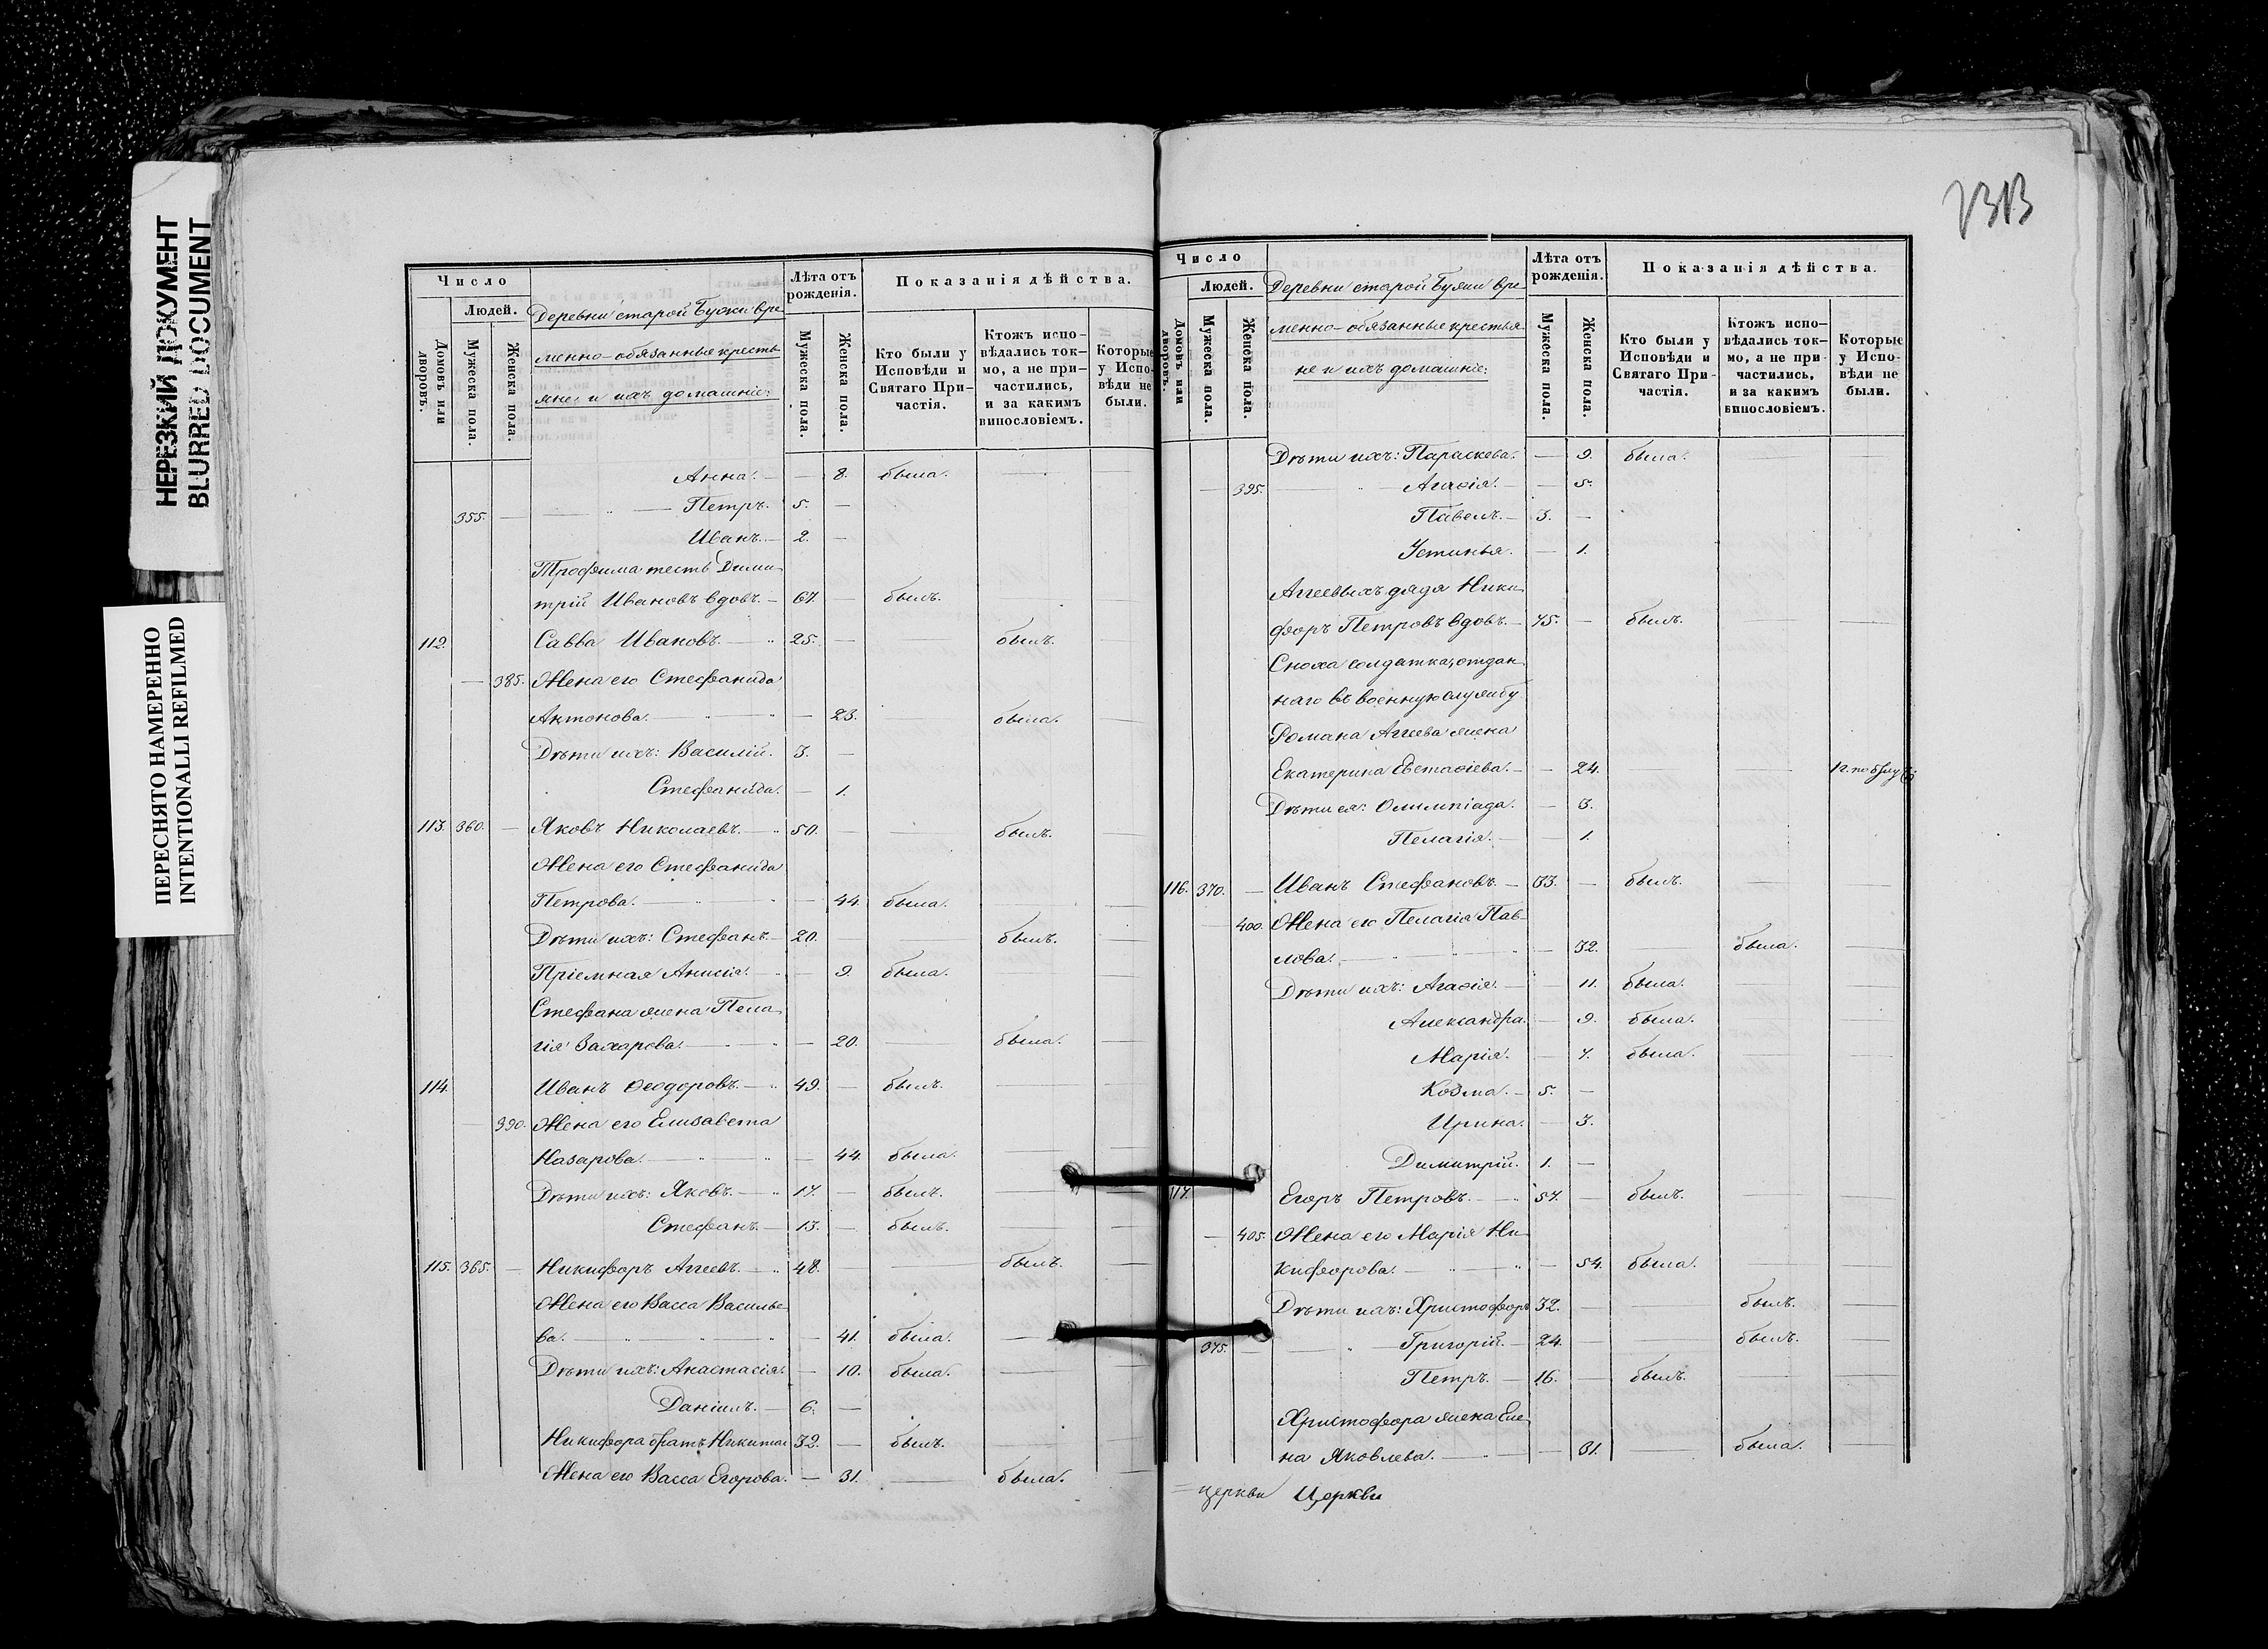 НЕРЕЗКИЙ ДОКУМЕНТ
BLURRED DOCUMENT
ПЕРЕСНЯТО НАМЕРЕННО
INTENTIONALLI REFILMED
Число
Людей.
Домовъ или дворовъ.
Мужеска пола.
Женска пола.
Деревни старой вре
менно-обязанные кресть
яне и ихъ домашніе:
Лѣта отъ рожденія.
Мужеска пола.
Женска пола.
Показанія дѣйства.
Кто были у Исповѣди и Святаго Причастія.
Ктожъ исповѣдались токмо, а не причастились, и за какимъ винословіемъ.
Которые у Исповѣди не были.
Анна. — 8. была.
355. — Петръ. 5. —
Иванъ. 2. —
Трофима тесть Дими
трій Ивановъ вдовъ. 67. — былъ.
112. Савва Ивановъ. 25. — былъ.
— 385. Жена его Стефанида
Антонова. — 23. — была. —
Дѣти ихъ: Василій. 3. —
Стефанида. — 1.
113. 360. — Яковъ Николаевъ. 50. — былъ. —
Жена его Стефанида
Петрова. — 44. была. —
Дѣти ихъ: Стефанъ. 20. — — былъ. —
Пріемная Анисія. — 9. была.
Стефана жена Пела
гія Захарова. — 20. — была. —
114. Иванъ Ѳеодоровъ. 49. — былъ. — —
— 390. Жена его Елисавета
Назарова. — 44. была. — —
Дѣти ихъ: Яковъ. 17. — былъ. — —
Стефанъ. 13. — былъ. — —
115. 365. — Никифоръ Аггеевъ. 48. — — былъ. —
Жена его Васса Василье
ва. — 41. была. —
Дѣти ихъ: Анастасія. — 10. была. — —
Даніилъ. 6. —
Никифора братъ Никита 32. — былъ. — —
Жена его Васса Егорова. — 31. — была. —
Число
Людей.
Домовъ или дворовъ.
Мужеска пола.
Женска пола.
Деревни старой вре
менно-обязанные крестья
не и ихъ домашніе:
Лѣта отъ рожденія.
Мужеска пола.
Женска пола.
Показанія дѣйства.
Кто были у Исповѣди и Святаго Причастія.
Ктожъ исповѣдались токмо, а не причастились, и за какимъ винословіемъ.
Которые у Исповѣди не были.
Дѣти ихъ: Параскева. — 9. была. — —
— 395. — Агаѳія. — 5.
Павелъ. 3. —
Устинья. — 1.
Аггеевыхъ дядя Ники
форъ Петровъ вдовъ. 75. — былъ. —
Сноха солдатка, отдан
наго въ военную службу
Романа Аггеева жена
Екатерина Евстаѳіева. — 24. — —
Дѣти ея: Олимпіада. — 3.
Пелагія. — 1.
116. 370. — Иванъ Стефановъ. 33. — былъ. — —
— 400. Жена его Пелагія Пав
лова. — 32. — была. —
Дѣти ихъ: Агаѳія. — 11. была. — —
Александра. — 9. была. — —
Марія. — 7. была. — —
Козма. 5. —
Ирина. — 3.
Димитрій. 1. —
117. Егоръ Петровъ. 57. — былъ. — —
— 405. Жена его Марія Ни
кифорова. — 54. была. — —
Дѣти ихъ: Христофоръ 32. — — былъ. —
375. — Григорій. 24. — — былъ. —
Петръ. 16. — былъ. — —
Христофора жена Еле
на Яковлева. — 31. — была. —
церкви Церкви